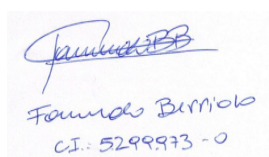 Facundo Berriolo
C.I.: 5299973-0